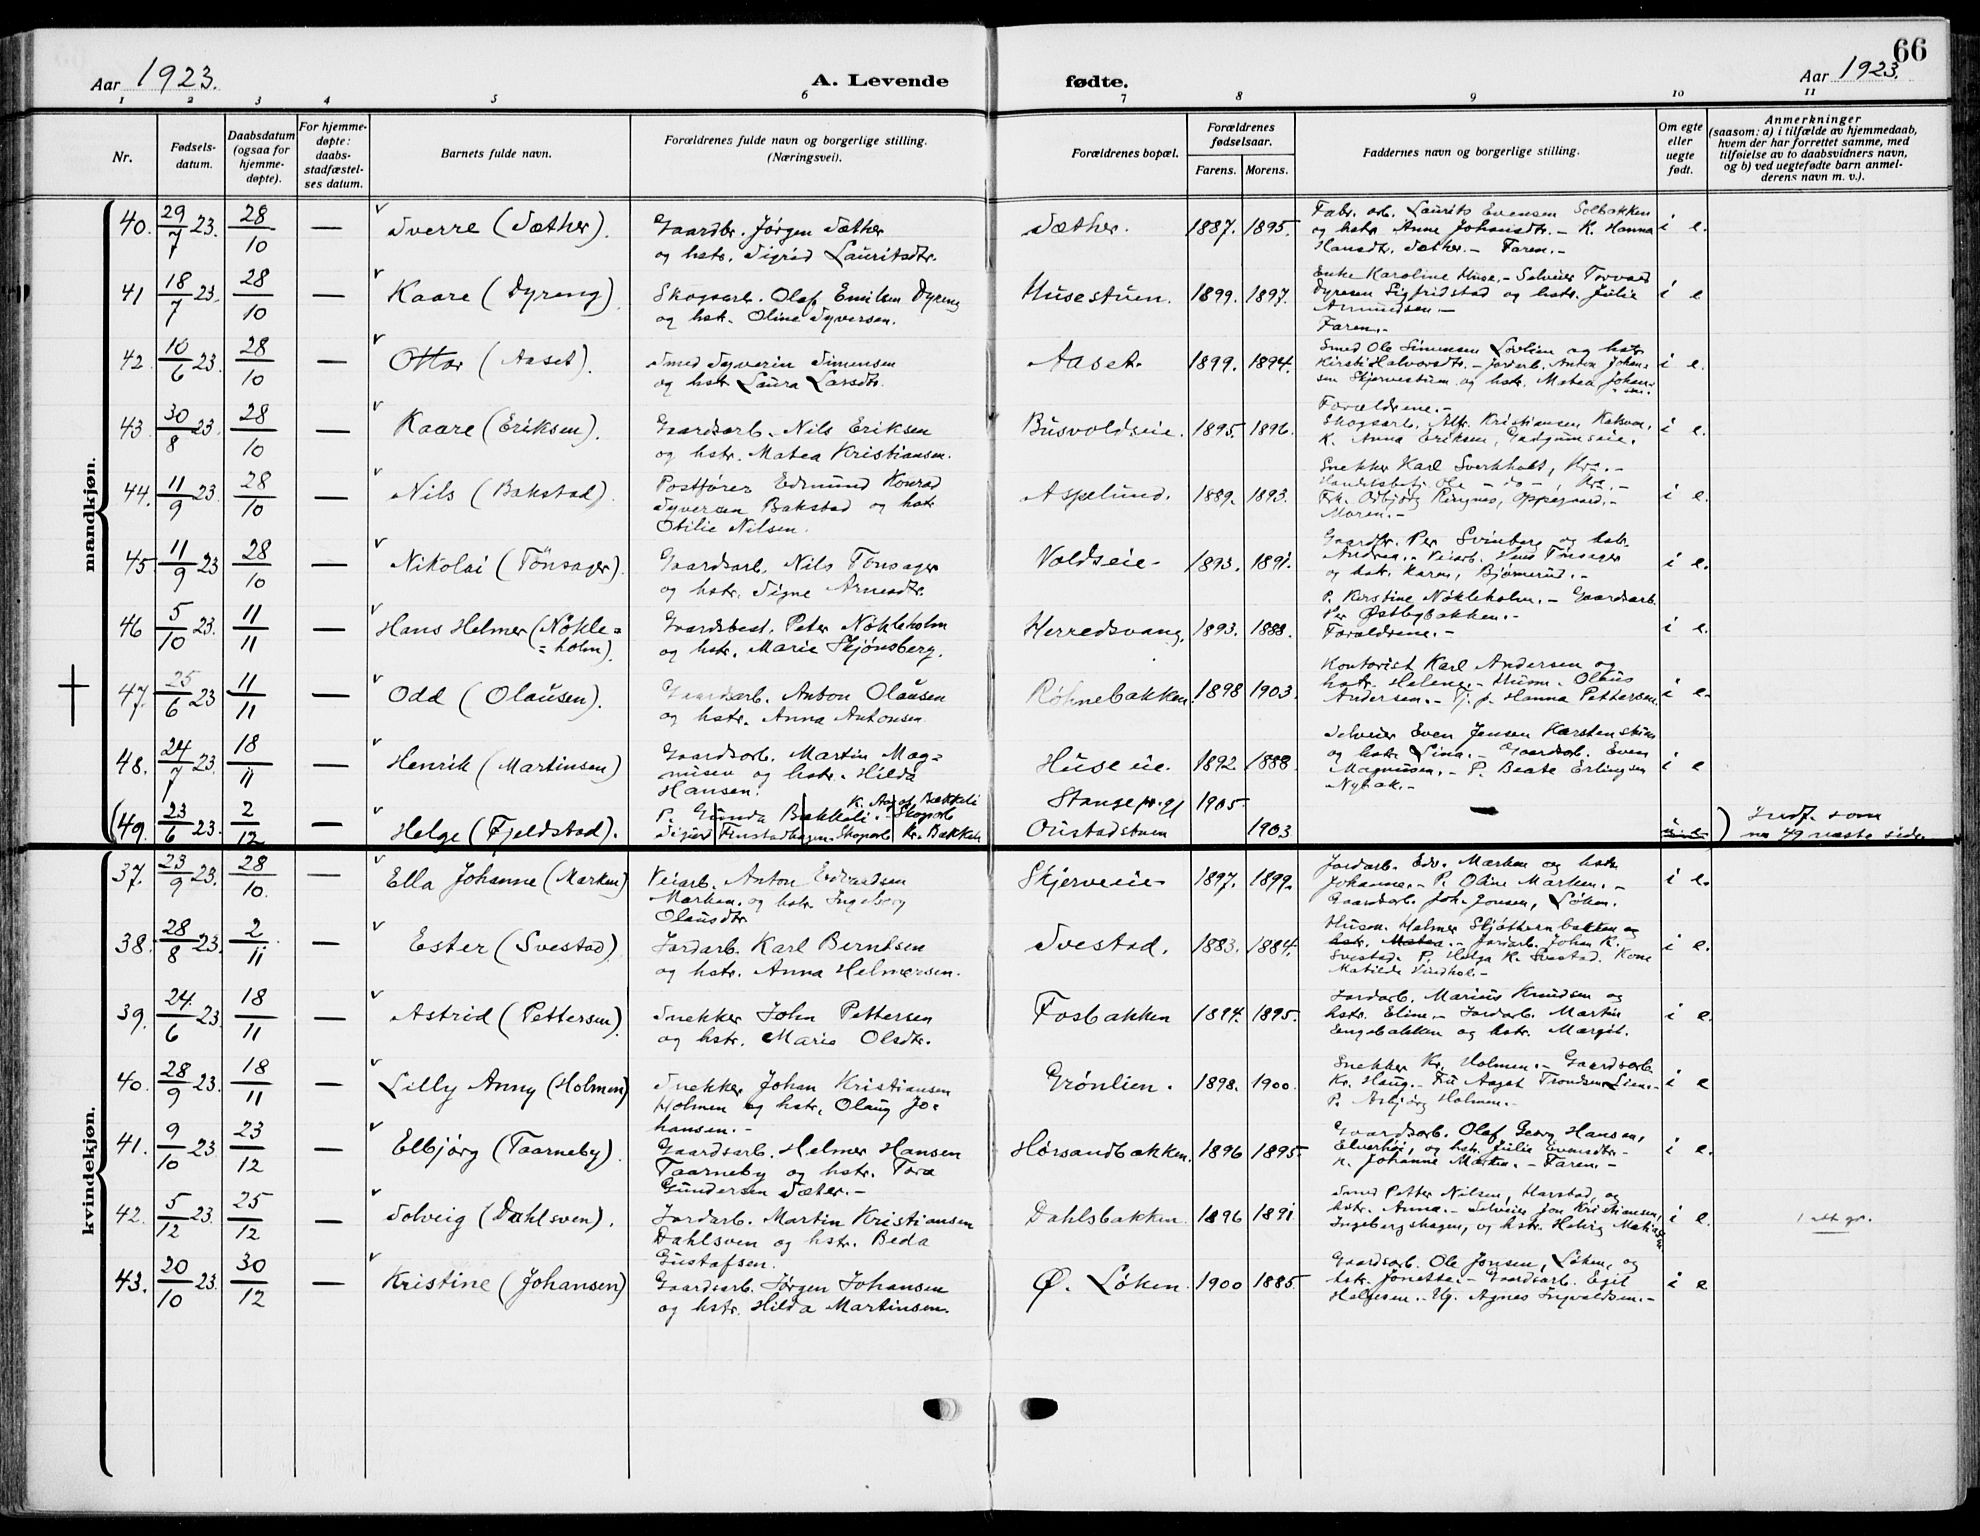 66
Aar 1923.
A. Levende
fødte.
Aar 1923.
1 2 3 4 5 6 7 8 9 10 11
Nr.
Fødsels-
datum.
Daabsdatum
(ogsaa for
hjemme-
døpte).
For hjemme-
døpte:
daabs-
stadfæstel-
ses datum.
Barnets fulde navn.
Forældrenes fulde navn og borgerlige stilling.
(Næringsvei).
Forældrenes bopæl.
Forældrenes
fødselsaar.
Farens. Morens.
Faddernes navn og borgerlige stilling.
Om egte
eller
uegte
født.
Anmerkninger
(saasom: a) i tilfælde av hjemmedaab,
hvem der har forrettet samme, med
tilføielse av to daabsvidners navn,
og b) ved uegtefødte barn anmel-
derens navn m. v.).
mandkjøn.
40. 29/7 23. 28/10 — Sverre (Sæther). Gaardbr. Jørgen Sæther Sæther. 1887. 1895. i e.
og hstr. Sigrid Lauritsdtr.
Fabr. arb. Laurits Evensen Solbakken
og hstr Anne Johansdtr. – K. Hanna
Hansdtr. Sæther. – Faren. –
41 18/7 23. 28/10 — Kaare (Dyreng). Skogsarb. Olaf Emilsen Dyreng Husestuen. 1899. 1897. i e
og hstr. Oline Syversen.
Enke Karoline Huse. – Selveier Torvald
Dyresen Sigfridstad og hstr. Julie
Amundsen –
Faren. –
42. 10/6 23. 28/10 — Ottar (Aaset). Smed Syverin Simensen Aaset. 1899. 1894. i e.
og hstr Laura Larsdtr.
Smed Ole Simensen Lövlien og hstr
Kirsti Halvorsdtr. – Jordarb. Anton Johan-
sen Skjervestuen og hstr. Matea Johan-
sen.
Forældrene. –
43 30/8 23. 28/10 — Kaare (Eriksen). Gaardsarb. Nils Eriksen Busvoldseie. 1895. 1896. i e.
og hstr. Matea Kristiansen.
Skogsarb. Alfr. Kristiansen
K. Anna Eriksen,
44. 11/9 23. 28/10 — Nils (Bakstad). Postfører Edmund Konrad Aspelund. 1889. 1893. i e.
Syversen Bakstad og hstr
Otilie Nilsen.
Snekker Karl Sverkholt,
Ole – do –
Frk. Ringnes, Oppegaard. –
Moren. –
45 11/9 23 28/10 — Nikolai (Tönsager). Gaardsarb. Nils Tönsager Voldseie – 1893. 1891. i e.
og hstr. Signe Arnesdtr.
Gaardbr. Per Svinberg og hstr.
Andrea. – Veiarb. Hans Tönsager
og hstr. Karen, Bjørnerud. –
46 5/10 23. 11/11 — Hans Helmer (Nökle= Gaardsbest. Peter Nökleholm Herredsvang. 1893. 1888. i e.
= holm). og hstr. Marie Skjønsberg.
P. Kirstine Nökleholm. – Gaardsarb.
Per Østbybakken. –
Forældrene. –
47. 25/6 23 11/11 — Odd (Olausen). Gaardsarb. Anton Olausen Røhnebakken. 1898 1903. i e.
og hstr. Anna Antonsen
Kontorist Karl Andersen og
hstr. Helene. – Husm. Olaus
Andersen. – Tj. p. Hanna Pettersen.
48. 24/7 23. 18/11 — Henrik (Martinsen) Gaardsarb. Martin Mag= Huseeie. 1892. 1888. i e
nusen og hstr. Hilda
Hansen.
Selveier Even Jensen Karstenstuen
og hstr. Lina. – Gaardsarb. Even
Magnusen. – P. Beate Erlingsen
Nybak. –
(49. 23/6 23. 2/12 — Helge (Fjeldstad). P. Gunda Bækkeli. Stange pr.gj 1905
Sigurd Finstadhagen Oustadstuen 1903
) Indf. som
no 49 næste side.
kvindekjøn.
37. 23/9 23. 28/10. — Ella Johanne (Marken) Veiarb. Anton Edvardsen Skjerveeie – 1897. 1899. i e.
Marken. og hstr. Ingeborg
Olausdtr
Jordarb. Edv. Marken og hstr
Johanne. – P. Oline Marken. –
Gaardsarb. Joh. Jonsen, Løken.
38. 28/8 23. 2/11 — Ester (Svestad) Jordarb. Karl Berntsen Svestad. 1883. 1884. i e.
og hstr. Anna Helmersen.
Husm. Helmer Skjøtternbakken og
hstr. Matea. – Jordarb. Johan K.
Svestad. P. Helga K. Svestad. Kone
Matilde Vindhol. –
39. 24./6 23. 18/11 — Astrid (Pettersen). Snekker John Pettersen Fosbakken 1894. 1895. i e.
og hstr. Marie Olsdtr.
Jordarb. Marius Knudsen og
hstr. Eline. – Jordarb. Martin
Engebakken og hstr. Margit.
40. 28/9 23. 18/11 — Lilly Anny (Holmen) Snekker Johan Kristiansen Grönlien. 1898. 1900. i e
Holmen og hstr. Olaug Jo=
hansen. –
Snekker Kr. Holmen. – Gaardsarb.
Kr. Haug. – Fru Aagot Trondsen Lien. –
P. Asbjørg Holmen. –
41. 9/10 23. 23/12 — Elbjörg (Taarneby). Gaardsarb. Helmer Hansen Hørsandbakken. 1896 1895. i e.
Taarneby og hstr. Tora
Gundersen Sæter. –
Gaardsarb. Olaf Georg Hansen,
Elverhöi, og hstr. Julie Evensdtr –
K. Johanne Marken. – Faren. –
42. 5/12 23. 25/12 — Solveig (Dahlsven). Jordarb. Martin Kristiansen Dahlsbakken. 1896 1891 i e. 1 att gr.
Dahlsven og hstr. Beda
Gustafsen.
Smed Petter Nilsen, Harstad, og
hstr. Anna. – Selveier Jon Kristiansen,
Ingebergshagen, og hstr. Helvig
43. 20/10 23. 30/12 — Kristine (Johansen) Gaardsarb. Jørgen Johansen Ø. Löken. 1900 1885. i e
og hstr. Hilda Martinsen.
Gaardsarb. Ole Jonsen, Löken, og
hstr. Jonette. – Gaardsarb. Egil
Helgesen. – Ug. Agnes Ingvaldsen. –